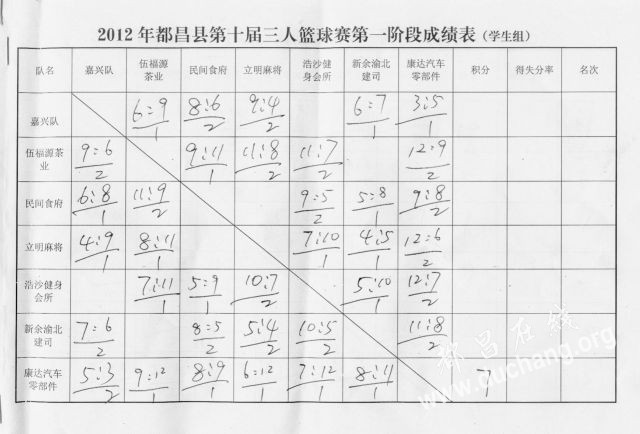 2012年都昌县第十届三人篮球赛第一阶段成绩表（学生组）
队名 嘉兴队 伍福源茶业 民间食府 立明麻将 浩沙健身会所 新余渝北建司 康达汽车零部件 积分 得失分率 名次
嘉兴队 6:9/1 8:6/2 9:4/2 6:7/1 3:5/1
伍福源茶业 9:6/2 9:11/1 11:8/2 11:7/2 12:9/2
民间食府 6:8/1 11:9/2 9:5/2 5:8/1 9:8/2
立明麻将 4:9/1 8:11/1 7:10/1 4:5/1 12:6/2
浩沙健身会所 7:11/1 5:9/1 10:7/2 5:10/1 12:7/2
新余渝北建司 7:6/2 8:5/2 5:4/2 10:5/2 11:8/2
康达汽车零部件 5:3/2 9:12/1 8:9/1 6:12/1 7:12/1 8:11/1 7
都昌在线
www.duchang.org